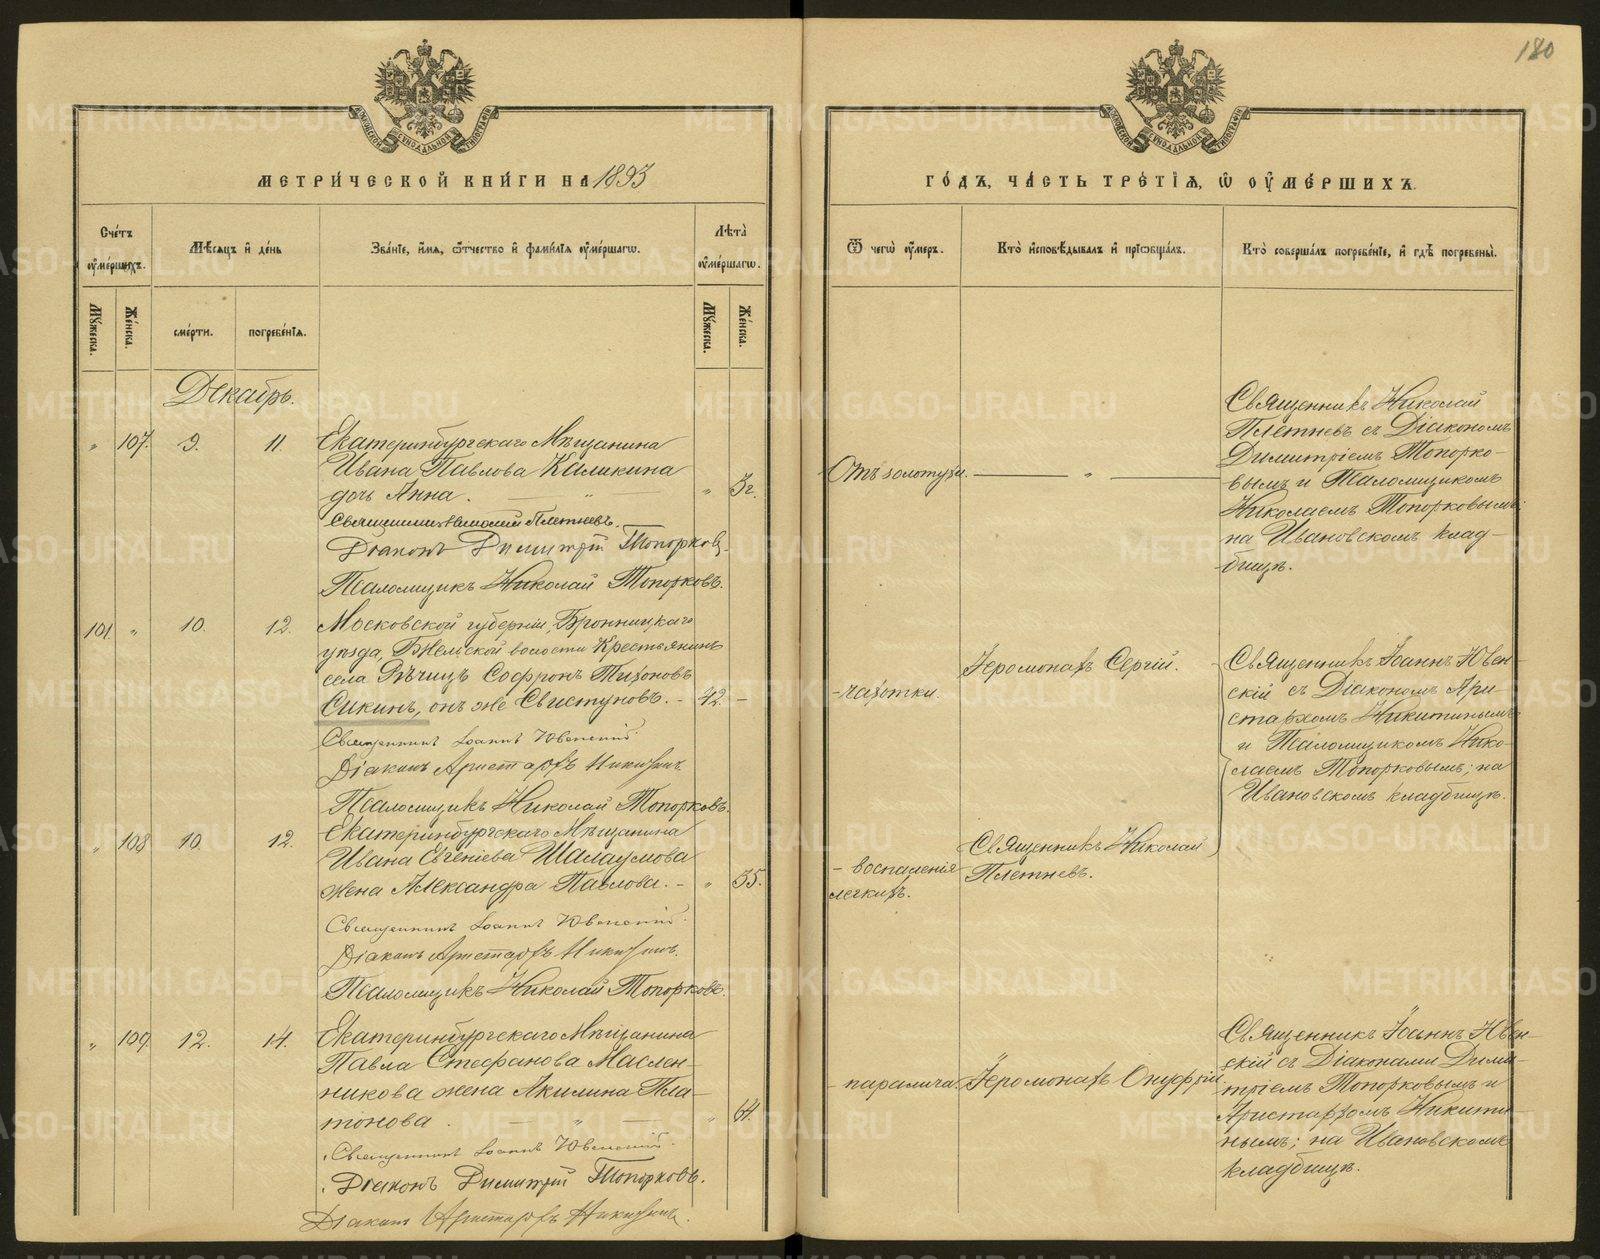 180
МЕТРИ́ЧЕСКОЙ КНИ́ГИ НА 1893
ГО́ДЪ, ЧА́СТЬ ТРЕ́ТІѦ, Ѡ ОУ҆МЕ́РШИХЪ.
Сче́тъ оу҆ме́ршихъ.
Мѣ́сѧцъ и҆ де́нь
Зва́нїе, и҆́мѧ, ѻ҆́тчество и҆ фами́лїѧ оу҆ме́ршагѡ.
Лѣ́та оу҆ме́ршагѡ.
Ѿ чегѡ̀ оу҆́меръ.
Кто̀ и҆сповѣ́дывалъ и҆ прїѡбща́лъ.
Кто̀ соверша́лъ погребе́нїе, и҆ гдѣ̀ погребены̀.
Мꙋ́жеска.
Же́нска.
сме́рти.
погребе́нїѧ.
Мꙋ́жеска.
Же́нска.
Декабрь.
" 107. 9. 11.
Екатеринбургскаго Мѣщанина
Ивана Павлова Каликина
дочь Анна. — " — " 3г.
Священникъ Николай Плетневъ.
Діаконъ Димитрій Топорковъ.
Псаломщикъ Николай Топорковъ.
Отъ золотухи. — " —
Священникъ Николай
Плетневъ съ Діакономъ
Димитріемъ Топорко-
вымъ и Псаломщикомъ
Николаемъ Топорковымъ;
на Ивановскомъ клад-
бищѣ.
101. " 10. 12.
Московской губерніи, Бронницкаго
уѣзда, волости Крестьянинъ
села Рѣчицъ Софронъ Тихоновъ
Сикинъ, онъ же Свистуновъ. - 42. -
Священникъ Іоаннъ Ювенскій.
Діаконъ Аристархъ Никитинъ
Псаломщикъ Николай Топорковъ.
- чахотки.
Іеромонахъ Сергій.
Священникъ Іоаннъ Ювен-
скій съ Діакономъ Ари-
стархомъ Никитинымъ
и Псаломщикомъ Нико-
лаемъ Топорковымъ; на
Ивановскомъ кладбищѣ.
" 108. 10. 12.
Екатеринбургскаго Мѣщанина
Ивана Евгеніева Шалаумова
жена Александра Павлова. - " 35.
Священникъ Іоаннъ Ювенскій.
Діаконъ Аристархъ Никитинъ.
Псаломщикъ Николай Топорковъ.
- воспаленія
легкихъ.
Священникъ Николай
Плетневъ.
" 109. 12. 14.
Екатеринбургскаго Мѣщанина
Павла Стефанова Маслен-
никова жена Акилина Пла-
тонова. — " — " 64.
Священникъ Іоаннъ Ювенскій.
Діаконъ Димитрій Топорковъ.
Діаконъ Аристархъ Никитинъ.
- паралича.
Іеромонахъ Онуфрій
Священникъ Іоаннъ Ювен-
скій съ Діаконами Дими-
тріемъ Топорковымъ и
Аристархомъ Никити-
нымъ; на Ивановскомъ
кладбищѣ.
METRIKI.GASO-URAL.RU